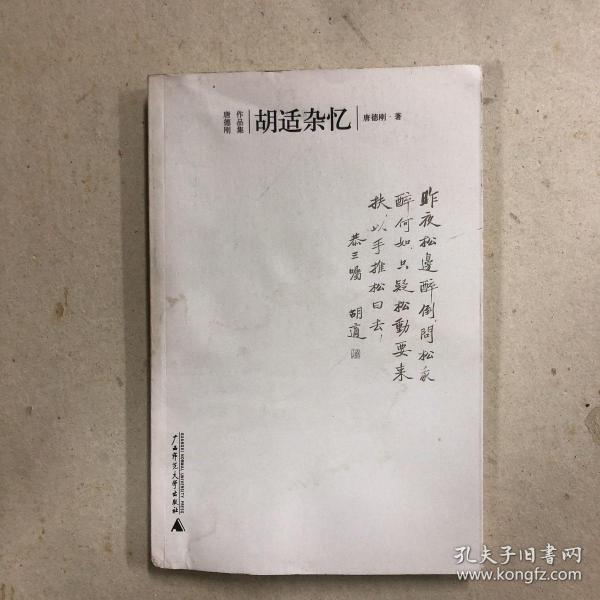 唐德刚
作品集
胡适杂忆
唐德刚·著
昨夜松邊醉倒問松我
醉何如只疑松動要来
扶以手推松曰去!
恭三囑 胡適
广西师范大学出版社
GUANGXI NORMAL UNIVERSITY PRESS
孔夫子旧书网
www.kongfz.com